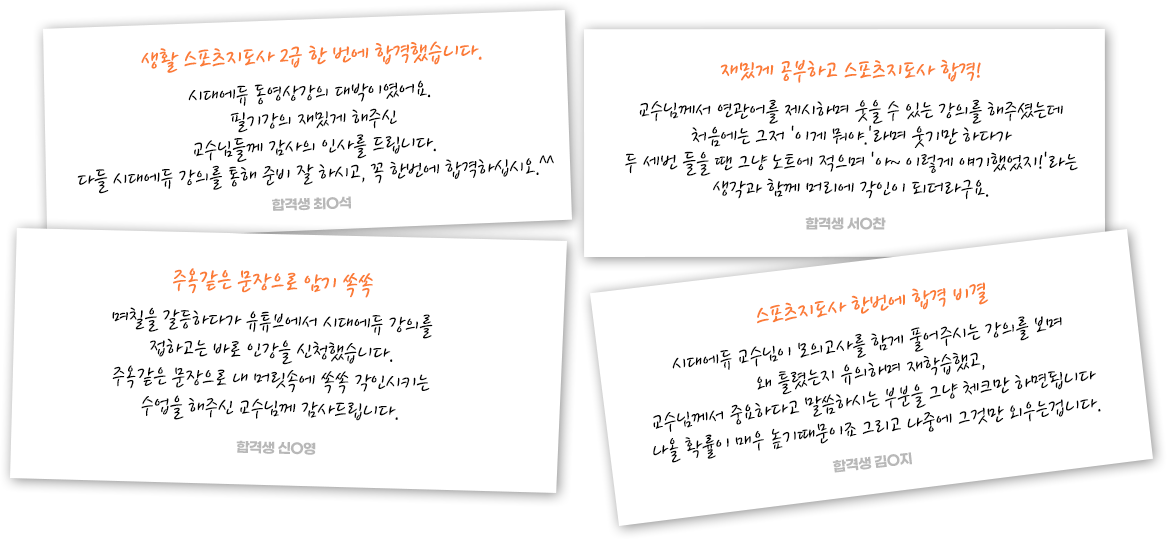 생활 스포츠지도사 2급 한 번에 합격했습니다.
시대에듀 동영상강의 대박이였어요.
필기강의 재밌게 해주신
교수님들께 감사의 인사를 드립니다.
다들 시대에듀 강의를 통해 준비 잘 하시고, 꼭 한번에 합격하십시오.^^
합격생 최O석
재밌게 공부하고 스포츠지도사 합격!
교수님께서 연관어를 제시하며 웃을 수 있는 강의를 해주셨는데
처음에는 그저 '이게 뭐야.'라며 웃기만 하다가
두 세번 들을 땐 그냥 노트에 적으며 '아~ 이렇게 얘기했었지!'라는
생각과 함께 머리에 각인이 되더라구요.
합격생 서O찬
주옥같은 문장으로 암기 쏙쏙
며칠을 갈등하다가 유튜브에서 시대에듀 강의를
접하고는 바로 인강을 신청했습니다.
주옥같은 문장으로 내 머릿속에 쏙쏙 각인시키는
수업을 해주신 교수님께 감사드립니다.
합격생 신O영
스포츠지도사 한번에 합격 비결
시대에듀 교수님이 모의고사를 함께 풀어주시는 강의를 보며
왜 틀렸는지 유의하며 재학습했고,
교수님께서 중요하다고 말씀하시는 부분을 그냥 체크만 하면됩니다
나올 확률이 매우 높기때문이죠 그리고 나중에 그것만 외우는겁니다.
합격생 김O지